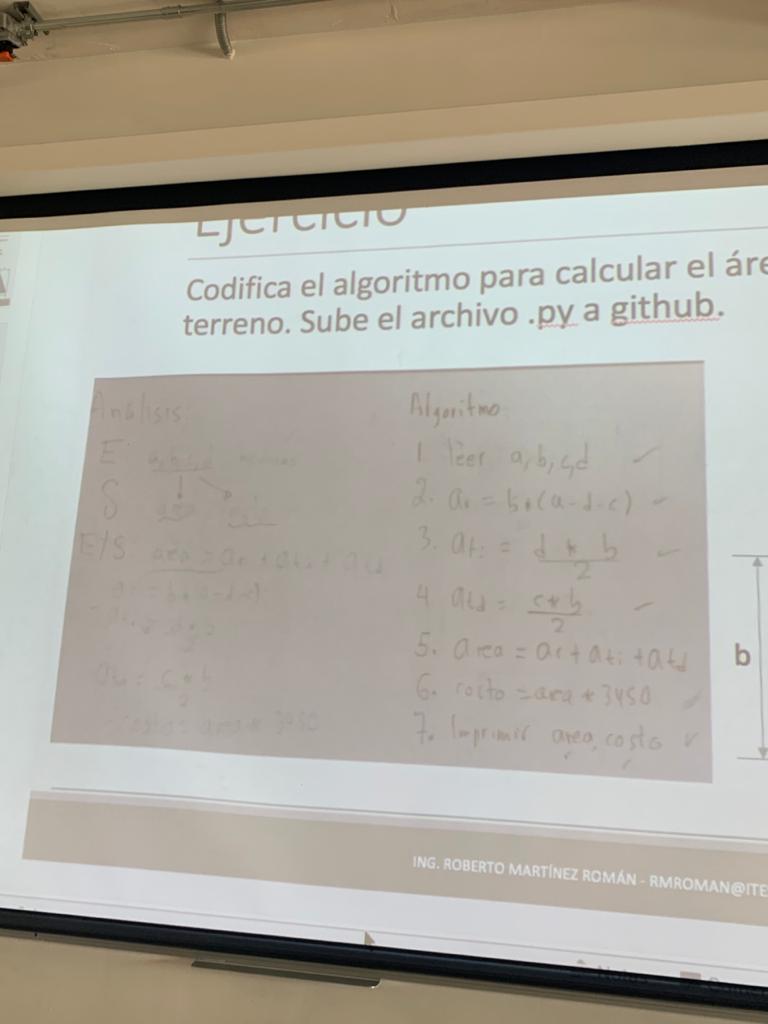 Ejercicio
Codifica el algoritmo para calcular el áre
terreno. Sube el archivo .py a github.
Análisis:
E a, b, c, d
S
E/S: area = ar + ati + atd
atd = c * b
2
costo = area * 3450
Algoritmo
1. leer a, b, c, d ✓
2. ar = b * (a-d-c) ✓
3. ati = d * b ✓
2
4. atd = c * b ✓
2
5. area = ar + ati + atd
6. costo = area * 3450 ✓
7. Imprimir area, costo ✓
b
ING. ROBERTO MARTÍNEZ ROMÁN - RMROMAN@ITE